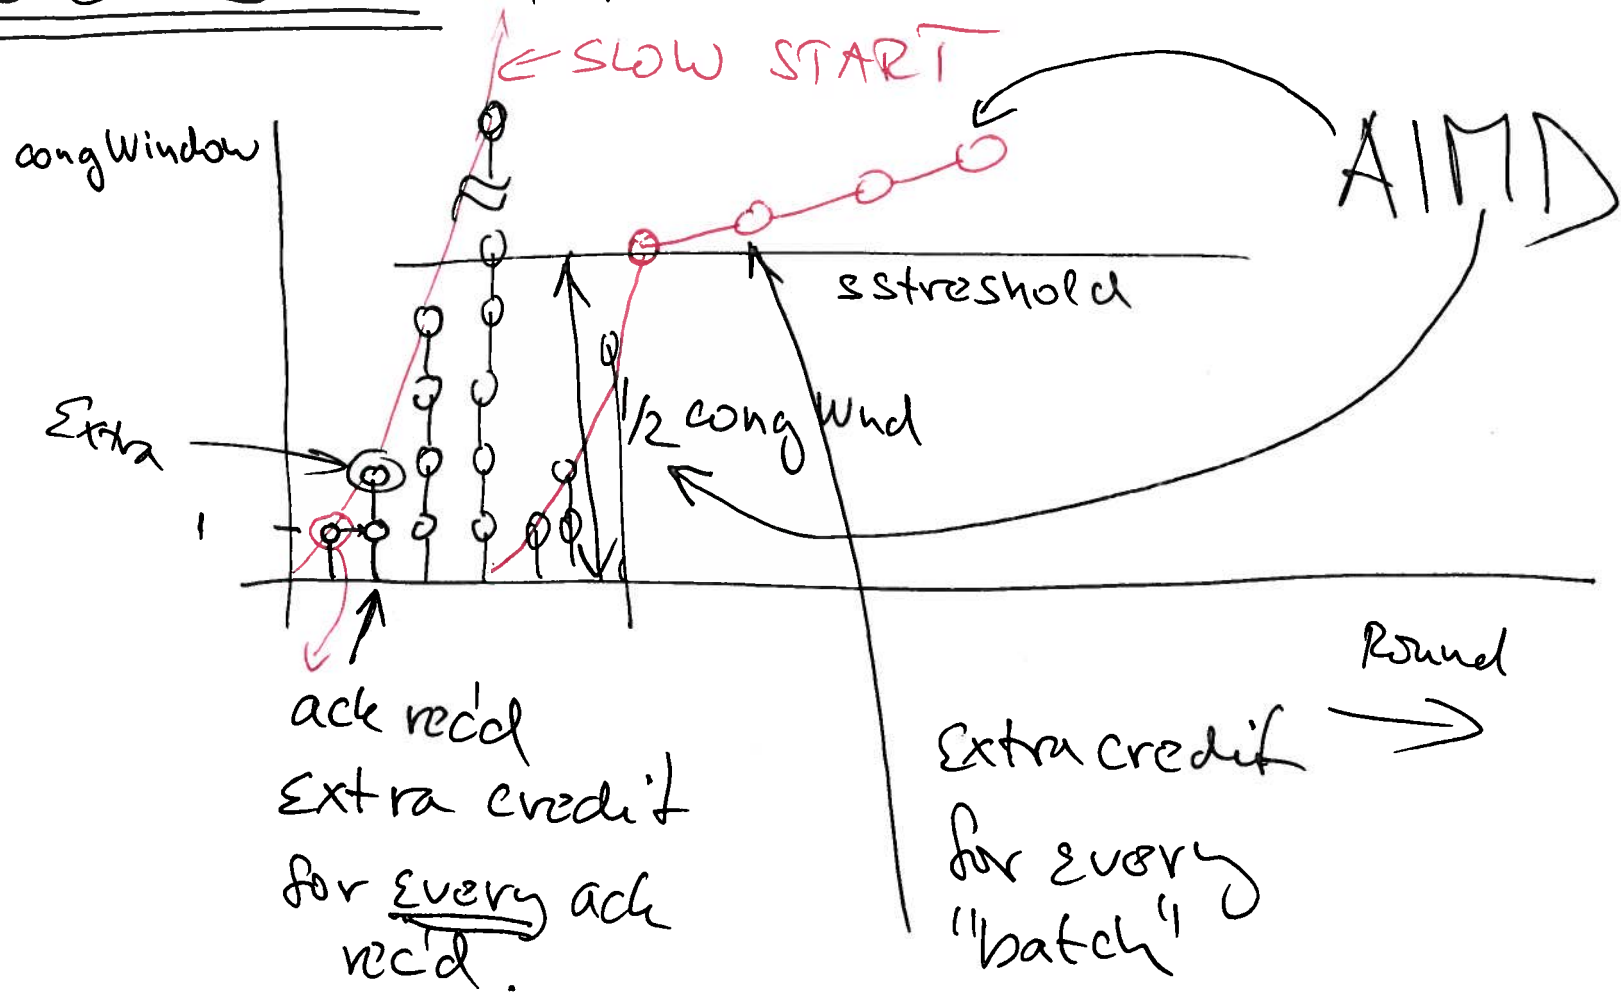 SLOW START
congWindow
AIMD
sstreshold
Extra
1/2 cong Wnd
1
Round
ack rec'd
Extra credit
for every ack
rec'd.
Extra credit
for every
"batch"